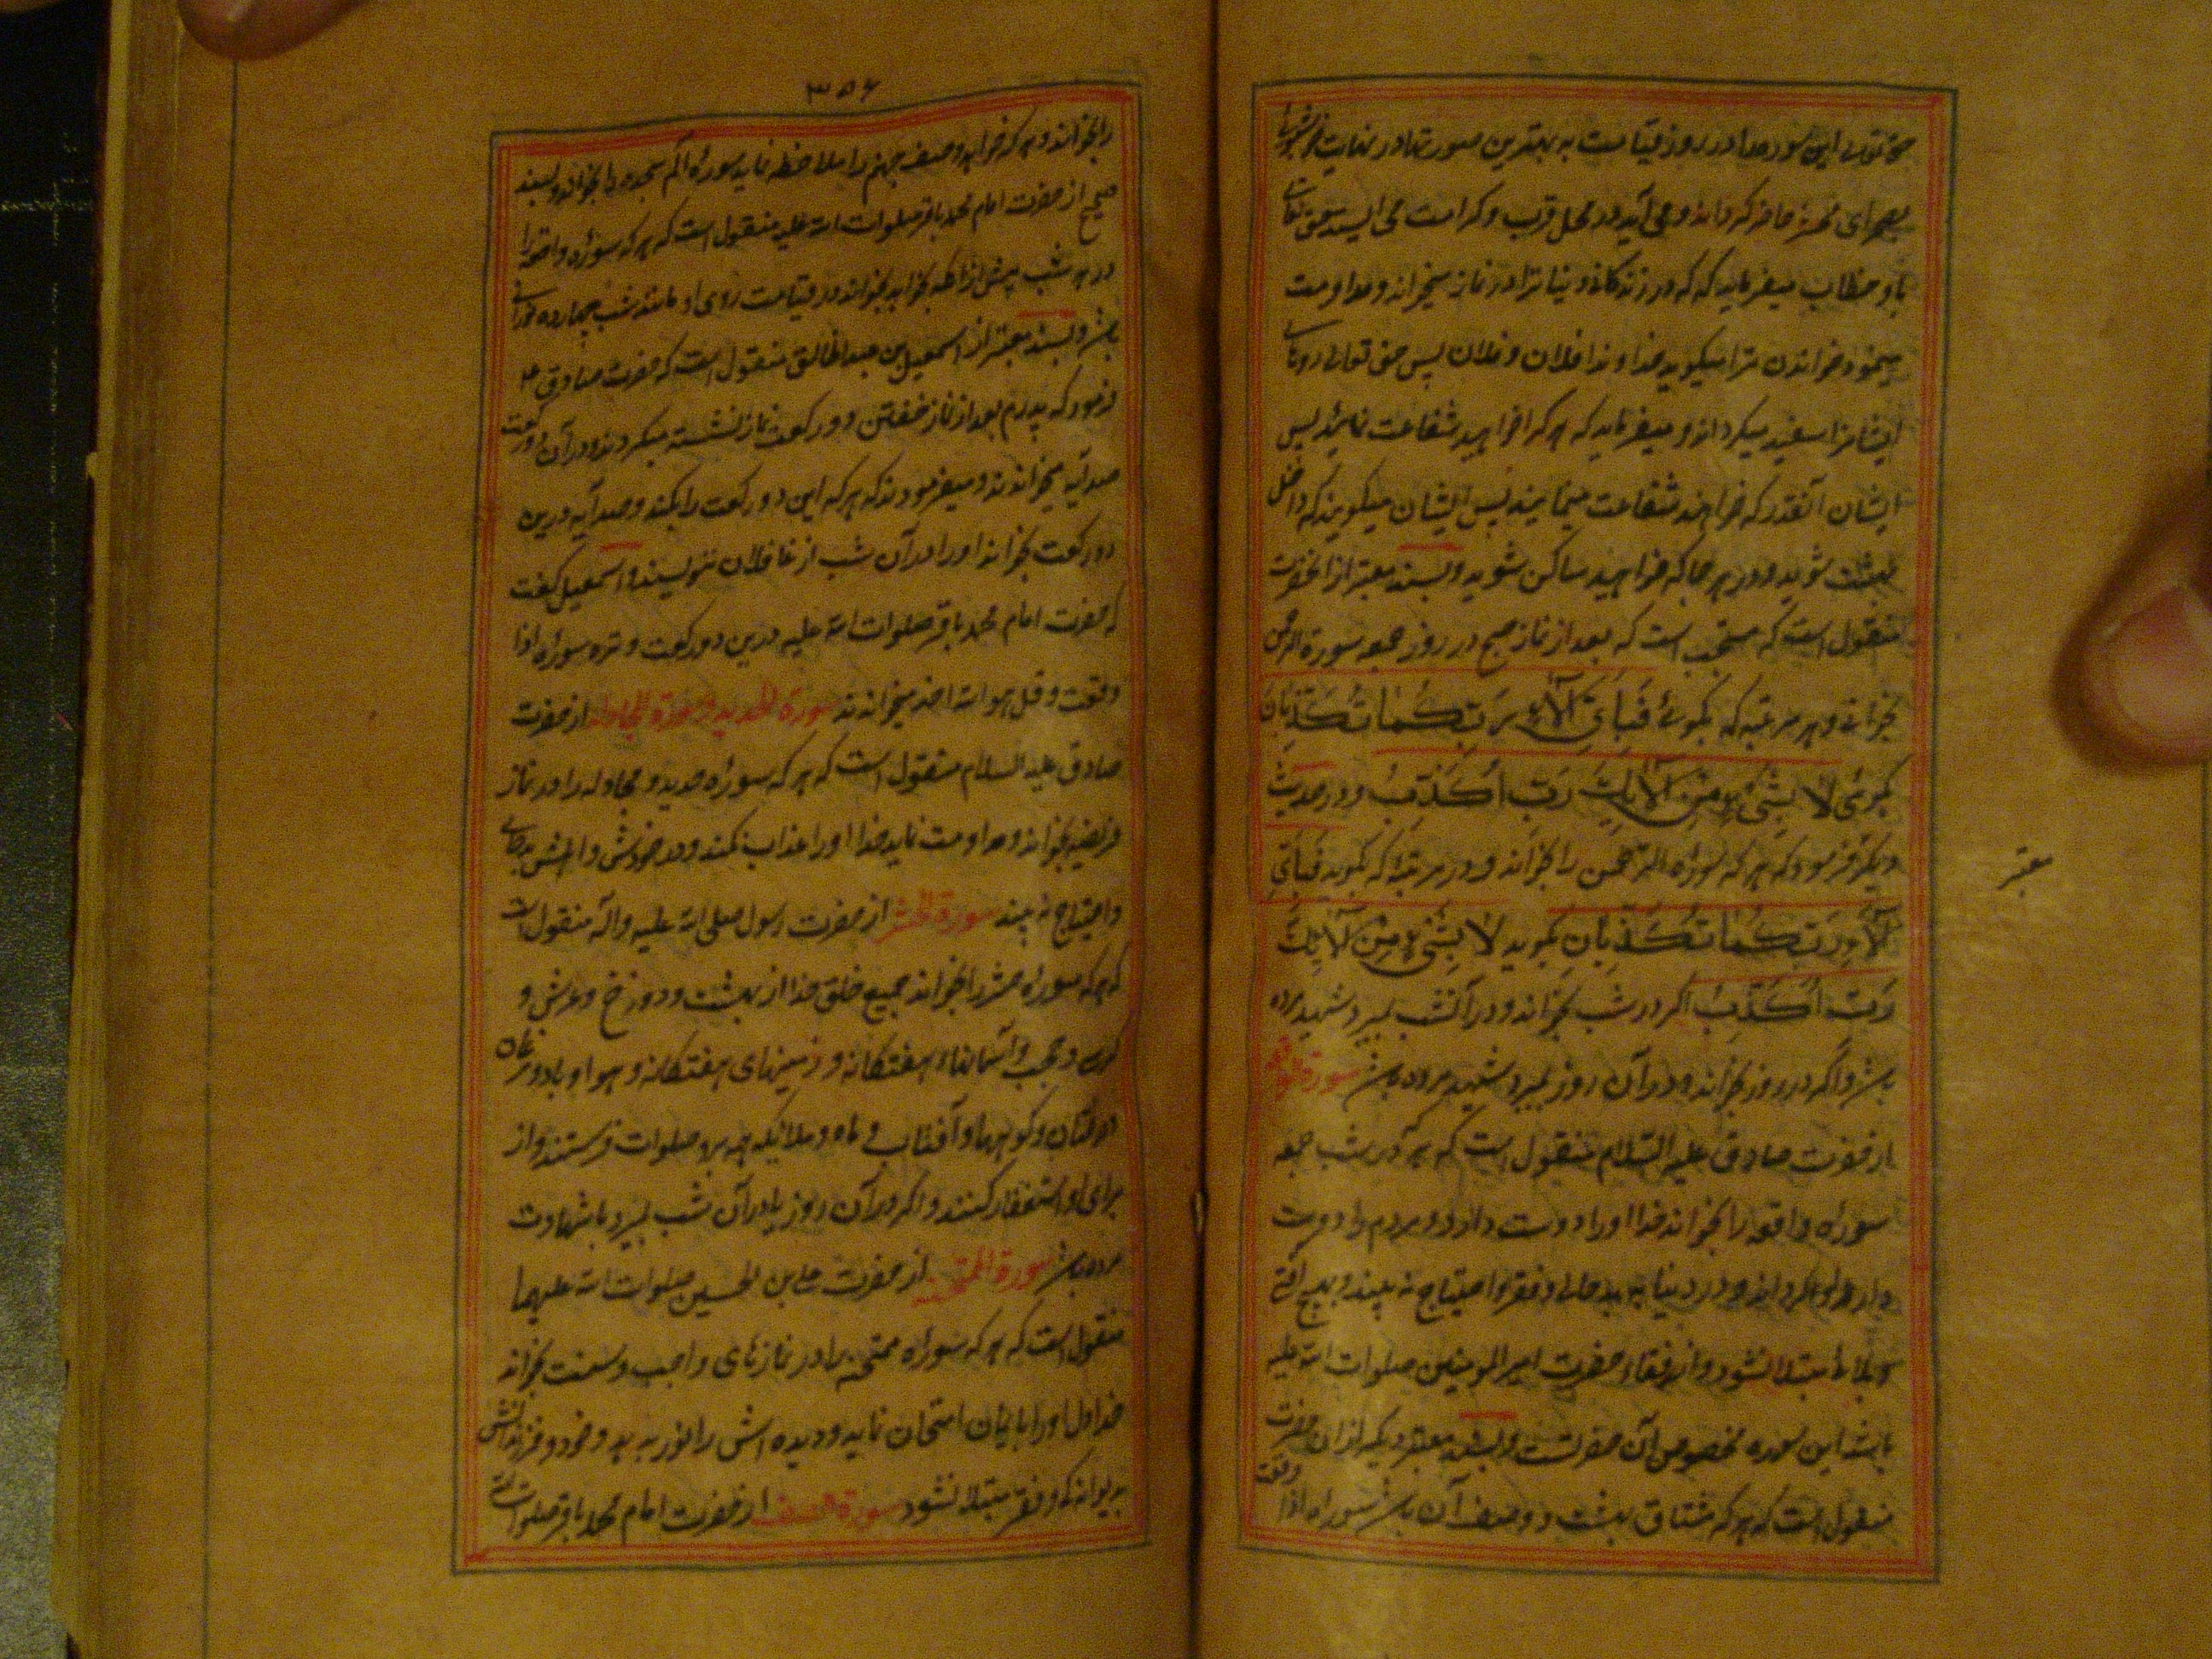 حق تعالی این سوره را در روز قیامت به بهترین صورتها در نهایت خوشبوئی
بصحرای محشر حاضر گرداند و می آید در محل قرب و کرامت می ایستد حق تعالی
باو خطاب میفرماید که که در زندگانی دنیا ترا در نماز میخواند و مداومت
بخواندن ترا میگوید خداوندا فلان و فلان پس حق تعالی روهای
ایشانرا سفید میگرداند و میفرماید که هر که را خواهید شفاعت نمائید پس
ایشان آنقدر که خواهند شفاعت مینمایند پس ایشان میگویند که داخل
بهشت شوید و در هر جا که خواهید ساکن شوید و بسند معتبر از آنحضرت
منقول است که مستحب است که بعد از نماز صبح در روز جمعه سورة الرحمن
بخوانی و هر مرتبه که بگوئی فَبِاَيِّ آلآءِ رَبِّكُمَا تُكَذِّبَان
بگوئی لا بِشَیْءٍ مِنْ آلآئِكَ رَبِّ اُكَذِّبُ و در حدیث
دیگر فرمود که هر که سوره الرحمن را بخواند و در هر مرتبه که بگوید فَبِاَيِّ
آلآءِ رَبِّكُمَا تُكَذِّبَان بگوید لا بِشَیْءٍ مِنْ آلآئِكَ
معتبر
رَبِّ اُكَذِّبُ اگر در شب بخواند و در آنشب بمیرد شهید مرده
باشد و اگر در روز بخواند و در آن روز بمیرد شهید مرده باشد سورة الواقعه
از حضرت صادق علیه السّلام منقول است که هر که در شب جمعه
سوره واقعه را بخواند خدا او را دوست دارد و مردم را دوست
او گرداند و در دنیا بد حالی و فقر و احتیاج نه بیند و بهیچ آفتی
و بلائی مبتلا نشود و از رفقاء حضرت امیر المومنین صلوات الله علیه
باشد این سوره مخصوص آن حضرتست و بسند معتبر دیگر از آن حضرت
منقول است که هر که مشتاق بهشت و وصف آن باشد سوره اذا وقعت
۳۵۶
را بخواند و هر که خواهد وصف جهنم را ملاحظه نماید سوره الم سجده را بخواند و بسند
صحیح از حضرت امام محمد باقر صلوات الله علیه منقول است که هر که سوره واقعه را
در هر شب پیش از آنکه بخوابد بخواند در قیامت روی او مانند شب چهارده نورانی
باشد و بسند معتبر از اسمعیل بن عبد الخالق منقول است که حضرت صادق ع
فرمود که پدرم بعد از نماز خفتن دو رکعت نماز نشسته میکردند و در آن دو رکعت
صد آیه میخواندند و میفرمودند که هر که این دو رکعت را بکند و صد آیه درین
دو رکعت بخواند او را در آن شب از غافلان ننویسند و اسمعیل گفت
که حضرت امام محمد باقر صلوات الله علیه درین دو رکعت وتره سوره اذا
وقعت و قل هو الله احد میخواندند سورة الحدید و سورة المجادله از حضرت
صادق علیه السلام منقول است که هر که سوره حدید و مجادله را در نماز
فریضه بخواند و مداومت نماید خدا او را عذاب نکند و در خودش و اهلش بدحالی
و احتیاج نه بیند سورة الحشر از حضرت رسول صلی الله علیه و آله منقول است
که هر که سوره حشر را بخواند جمیع خلق خدا از بهشت و دوزخ و عرش و
کرسی و حجب و آسمانهاء هفتگانه و زمینهای هفتگانه و هوا و باد و مرغان
درختان و کوهها و آفتاب و ماه و ملائکه همه بر او صلوات فرستند و از
برای او استغفار کنند و اگر در آن روز یا در آن شب بمیرد با شهادت
مرده باشد سورة الممتحنه از حضرت علی بن الحسین صلوات الله علیهما
منقول است که هر که سوره ممتحنه را در نمازهای واجب و سنت بخواند
خدا دل او را با ایمان امتحان نماید و دیده اش را نور بدهد و خود و فرزندانش
بدیوانگی و فقر مبتلا نشود سورة الصف از حضرت امام محمد باقر صلوات الله